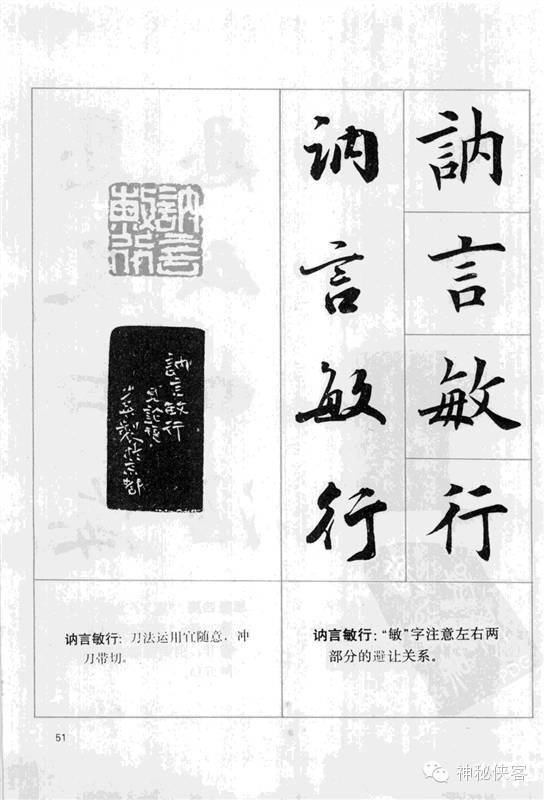 訥言敏行
訥言敏行
訥言敏行
訥言敏行
見論語
製於京都
讷言敏行：刀法运用宜随意，冲
刀带切。
讷言敏行：“敏”字注意左右两
部分的避让关系。
51
神秘侠客